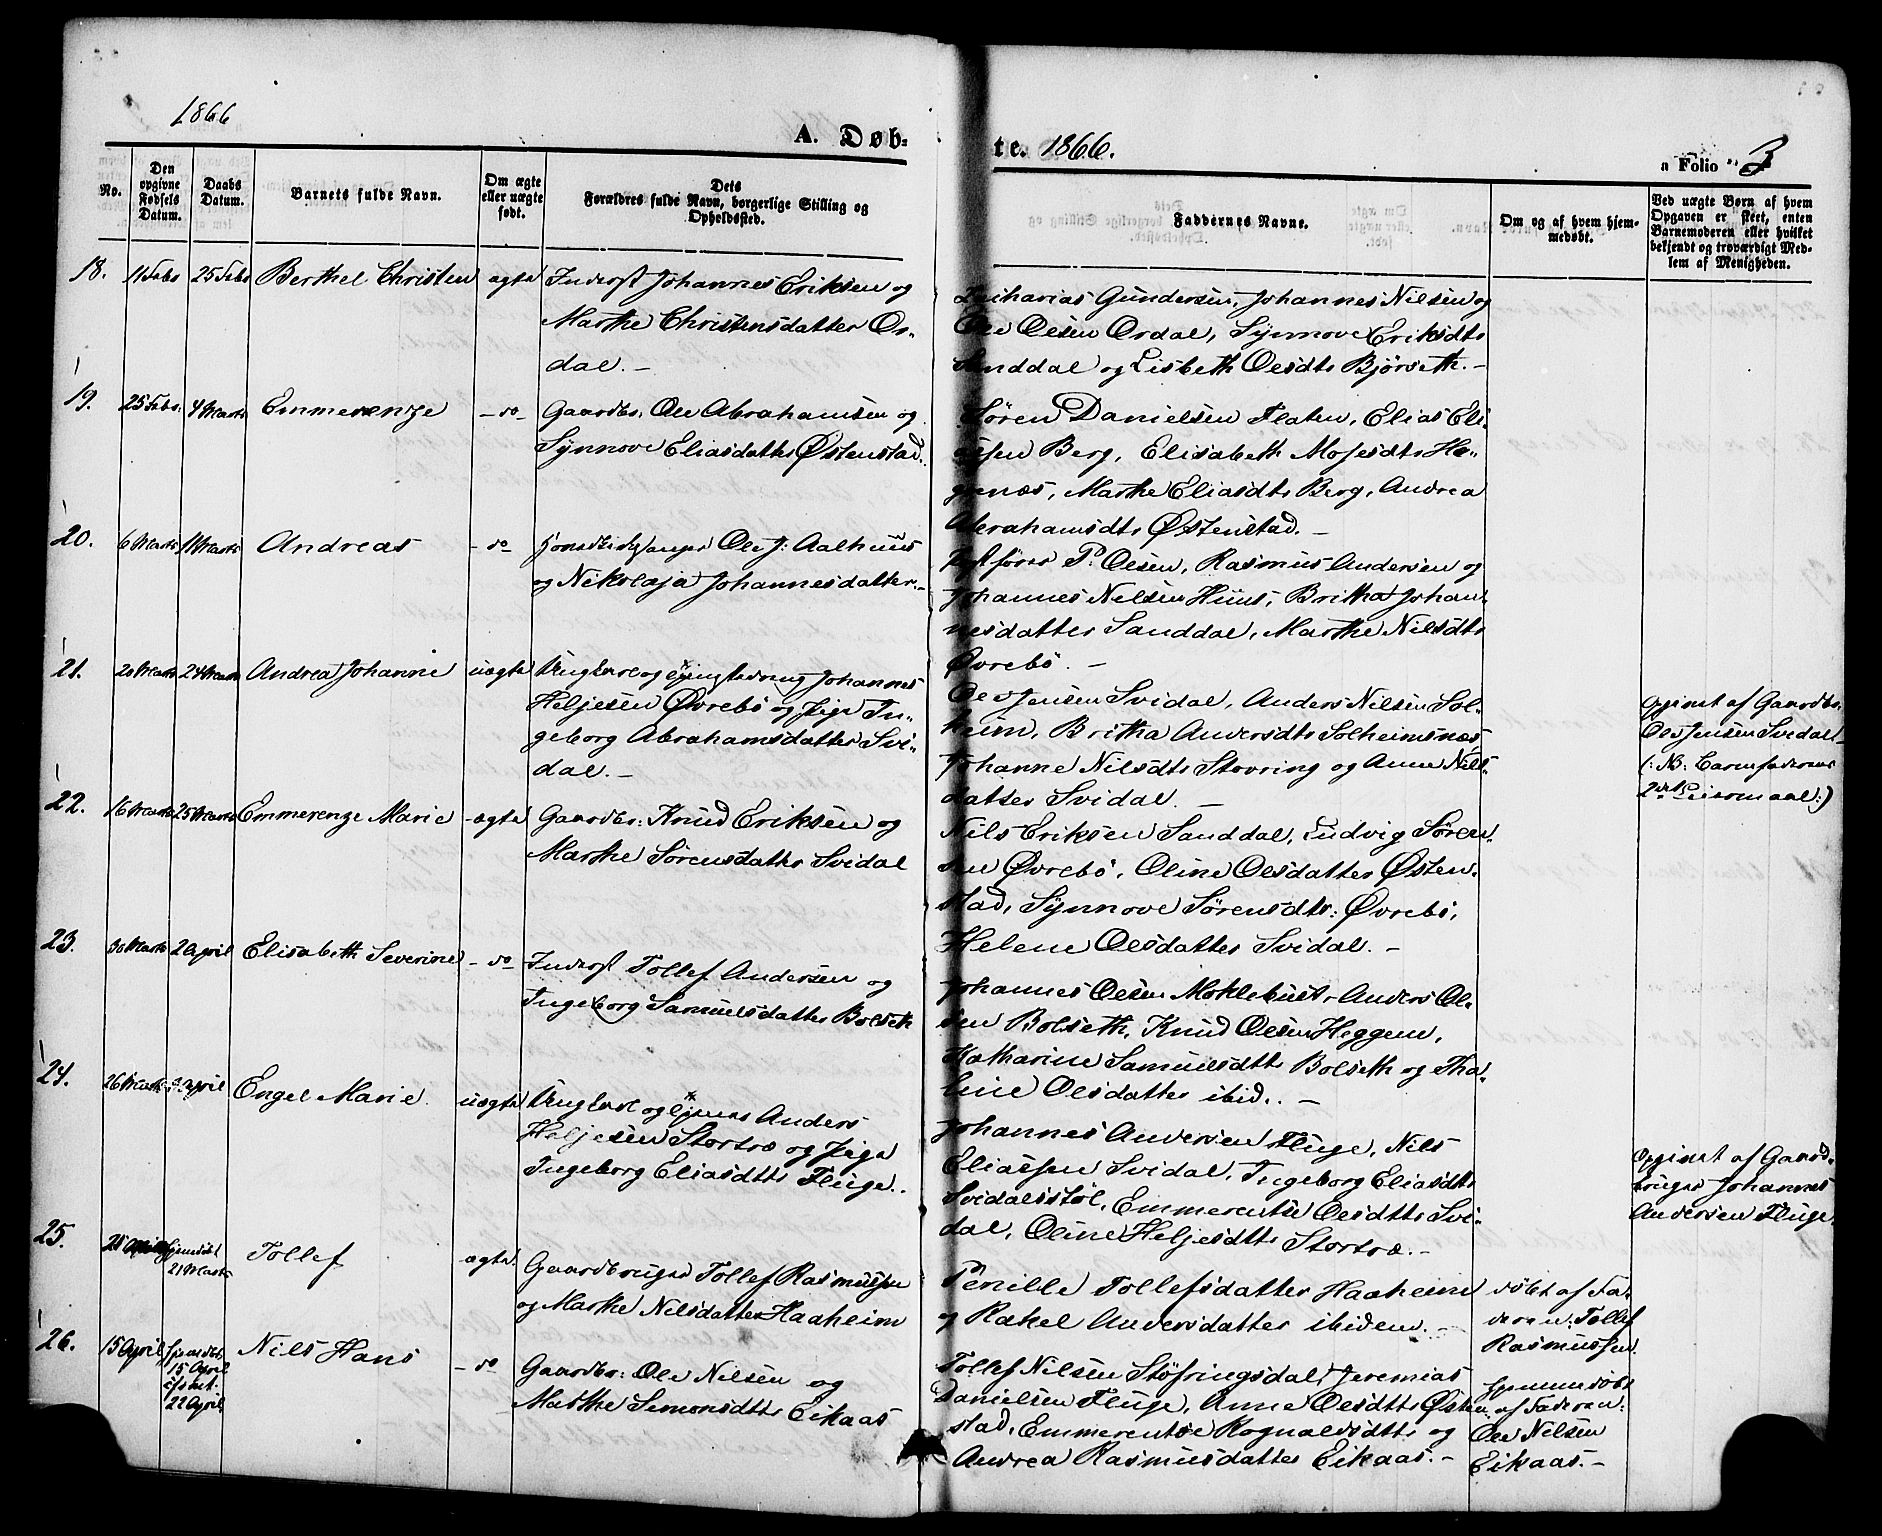 1866
A. Døb-
te. 1866.
a Folio 3
No.
Den opgivne Fødsels Datum.
Daabs Datum.
Barnets fulde Navn.
Om ægte eller uægte født.
Dets Forældres fulde Navn, borgerlige Stilling og Opholdssted.
Faddernes Navne.
Om og af hvem hjemmedøbt.
Ved uægte Børn af hvem Opgaven er skeet, enten Barnemoderen eller hvilket bekjendt og troværdigt Medlem af Menigheden.
18. 11 Febr 25 Febr Berthel Christen ægte Inderst Johannes Eriksen og
Marthe Christensdatter Or-
dal. -
Zacharias Gundersen, Johannes Nilsen og
Ole Olsen Ordal, Synnove Eriksdtr
Sanddal og Lisbeth Olsdtr Bjørseth. -
19. 25 Febr. 4 Marts Emmerenze - do - Gaardbr. Ole Abrahamsen og
Synnove Eliasdatter Østenstad.
Søren Danielsen Flaten, Elias Eli-
assen Berg, Elisabeth Mosesdtr He-
grenæs, Marthe Eliasdtr Berg, Andrea
Abrahamsdtr Østenstad. -
20. 6 Marts 11 Marts Andreas - do Ole J: Aalhuus
og Nikolaja Johannesdatter. -
P. Olsen, Rasmus Andersen og
Johannes Nilsen Huus, Britha Johan-
nesdatter Sanddal, Marthe Nilsdtr
Øvrebö. -
21. 20 Marts 24 Marts Andrea Johanne uægte Ungkarl og Johannes
Heljesen Øvrebö og Pige In-
geborg Abrahamsdatter Svi-
dal. -
Ole Jensen Svidal, Anders Nilsen Sol-
heim, Britha Andersdtr Solheimsnæs
Johanne Nilsdtr Stovring og Anne Nils-
datter Svidal. -
Opgivet af Gaardbr.
Ole Jensen Svidal -
(: NB: Barnefaderens
2det Leiermaal:)
22. 16 Marts 25 Marts Emmerenze Marie ægte Gaardbr: Knud Eriksen og
Marthe Sørensdatter Svidal
Nils Eriksen Sanddal, Ludvig Søren-
sen Øvrebö, Oline Olsdatter Østen-
stad, Synnove Sørensdtr: Øvrebö,
Helene Olsdatter Svidal. -
23. 30 Marts 2 April Elisabeth Severine - do Inderst Tollef Andersen og
Ingeborg Samuelsdatter Bolseth
Johannes Olsen Moklebust, Anders Ol-
sen Bolseth, Knud Olsen Heggem,
Katharine Samuelsdtr Bolseth og Tha-
line Olsdatter ibid. -
24. 26 Marts April Engel Marie. uægte Ungkarl og Anders
Heljesen Stortræ og Pige
Ingeborg Eliasdtr Fluge.
Johannes Andersen Fluge, Nils
Eliassen Svidal, Ingeborg Eliasdtr
Svidalsstøl, Emmerentse Olsdtr Svi-
dal, Oline Heljesdtr Stortræ. -
Opgivet af Gaard-
bruger Johannes
Andersen Fluge.
25. hjemdøbt
21 Marts Tollef ægte Gaardbruger Tollef Rasmussen
og Marthe Nilsdatter Haaheim
Pernille Tollefsdatter Haaheim
og Rakel Andersdatter ibidem. -
døbt af Fa-
deren: Tollef
Rasmussen.
26. 15 April hjemdbt.
15 April
22 April Nils Hans - do Gaardbr: Ole Nilsen og
Marthe Simonsdtr Eikaas
Tollef Nilsen Støfringsdal, Jeremias
Danielsen Fluge, Anne Olsdtr Østen-
stad, Emmerentse Rognaldsdtr og
Andrea Rasmusdatter Eikaas. -
hjemmedöbt
af Faderen:
Ole Nilsen
Eikaas. -